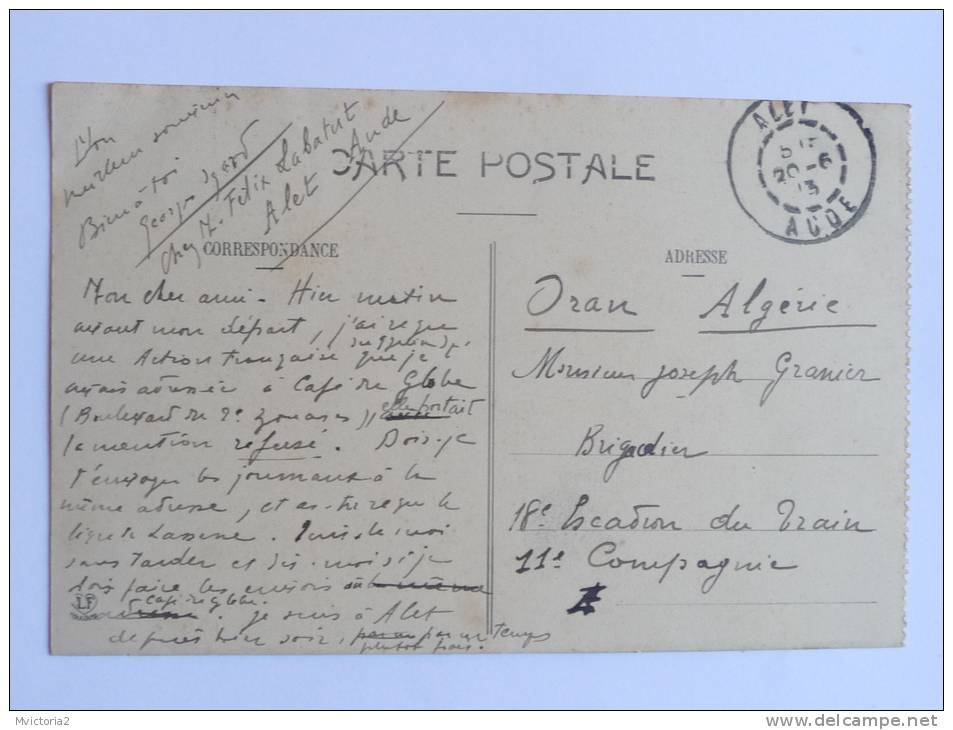 Mon
meilleur souvenir
Bien à toi
Georges
chez M. Félix Labatut
Alet Aude
CARTE POSTALE
ALET
20-6
13
AUDE
CORRESPONDANCE
ADRESSE
Mon cher ami - Hier matin
avant mon départ, j'ai reçu
une Action Française que je
avais adressée à Café du Globe
(Boulevard du 2e zouaves), elle portait
la mention refusé. Dois-je
t'envoyer les journaux à la
même adresse, et as-tu reçu le
. Écris-le moi
sans tarder et dis-moi si je
dois faire les envois au
Café du Globe. je suis à Alet
depuis hier soir, par un temps
plutôt frais.
Oran Algérie
Monsieur Joseph Granier
Brigadier
18e Escadron du Train
11e Compagnie
LF
Mvictoria2
delcampe.net